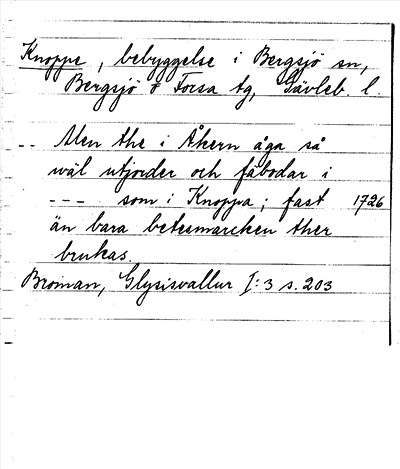 Knoppe, bebyggelse i Bergsjö sn,
Bergsjö o Forsa tg, Gävleb. l.
-- Men the i Åkern äga så
wäl utjorder och fäbodar i
--- som i Knoppa; fast 1726
än bara betesmarcken ther
brukas.
Broman, Glysisvallur I:3 s. 203